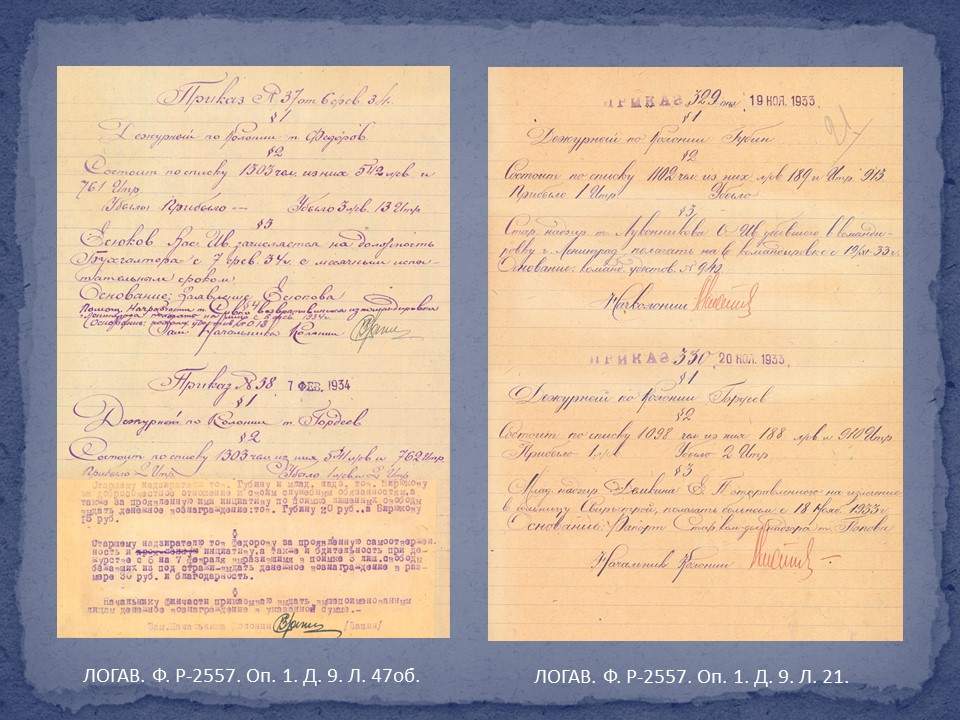 Приказ № 37 от 6 фев. 34г.
§1
Дежурный по Колонии т. Федоров
§2
Состоит по списку 1303 чел. из них 542 лрв и
761 Итр.
Убыло: Прибыло — Убыло 3 лрв. 13 Итр
§3
Есюков Вас. Ив. зачисляется на должность
Бухгалтера с 7 фев. 34г. с месячным испы-
тательным сроком
Основание: Заявление Есюкова
§4
Зам. Начальника Колонии
Приказ № 38 7 ФЕВ. 1934
§1
Дежурный по Колонии т. Гордеев
§2
Состоит по списку 1303 чел. из них 541 лрв и 762 Итр.
Прибыло 2 Итр. Убыло 1 лрв 2 Итр.
Старшему надзирателю тов. Губину и млад. надз. тов. Бирюкову
за добросовестное отношение к своим служебным обязанностям, а
также за проявленную ими инициативу по поимке лишенных свободы
выдать денежное вознаграждение: тов. Губину 20 руб., а Бирюкову
15 руб.
§
Старшему надзирателю тов. Федорову за проявленную самоотвержен-
ность и инициативу, а также и бдительность при де-
журстве с 6 на 7 февраля выразившимя в поимке 3 лиш. свободы
бежавших из под стражи-выдать денежное вознаграждение в раз-
мере 30 руб. и благодарность.
§
Начальнику финчасти приказываю выдать вышепоименованным
лицам денежное вознаграждение в указанной сумме.-
Зам. Начальника Колонии (Вацин)
ЛОГАВ. Ф. Р-2557. Оп. 1. Д. 9. Л. 47об.
ПРИКАЗ 329 от 19 НОЯ. 1933
21
§1
Дежурный по Колонии Губин
§2
Состоит по списку 1102 чел. из них лрв 189 и Итр. 913
Прибыло 1 Итр. Убыло
§3
Стар. надзир. т. убывшего в команди-
ровку г. Ленинград полагать на в командировке с 19/XI-33г.
Основание: команд. удостов. № 942.
Начколонии
ПРИКАЗ 330 20 НОЯ. 1933
§1
Дежурный по Колонии
§2
Состоит по списку 1098 чел. из них 188 лрв и 910 Итр
Прибыло 1 лрв Убыло 2 Итр
§3
Млад. надзир. Демкина Е. П. отправленного на излечение
в больницу Свирьстрой, полагать больным с 18 Нояб 1933г.
Основание: Рапорт Стар. надзира т. Попова
Начальник Колонии
ЛОГАВ. Ф. Р-2557. Оп. 1. Д. 9. Л. 21.